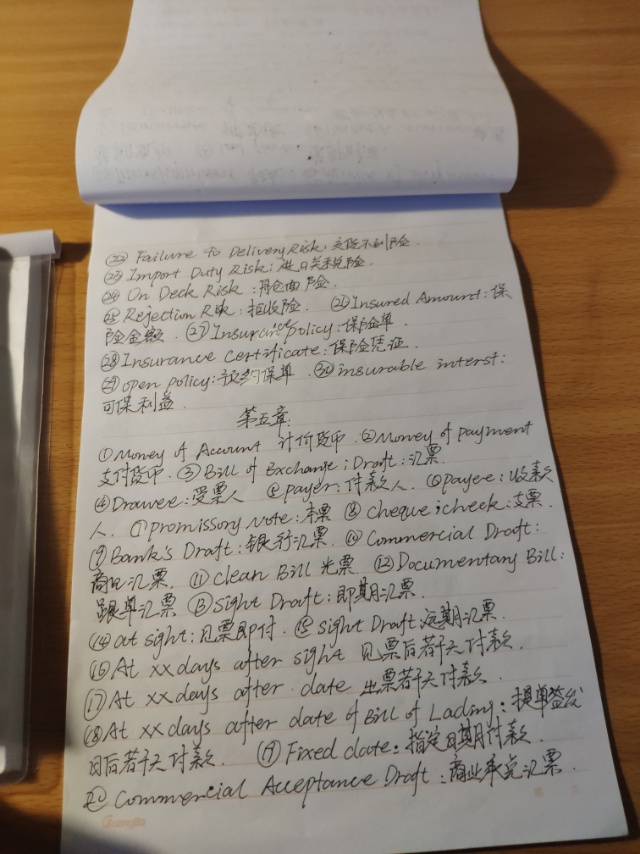 ㉒ Failure to Delivery Risk: 交货不到险.
㉓ Import Duty Risk: 进口关税险.
㉔ On Deck Risk: 舱面险.
㉕ Rejection Risk: 拒收险. ㉖ Insured Amount: 保
险金额. ㉗ Insurance policy: 保险单.
㉘ Insurance Certificate: 保险凭证.
㉙ open policy: 预约保单 ㉚ insurable interst:
可保利益.
第五章:
① Money of Account 计价货币. ② Money of payment
支付货币. ③ Bill of Exchange; Draft: 汇票.
④ Drawee: 受票人 ⑤ payer: 付款人. ⑥ payee: 收款
人. ⑦ promissory note: 本票 ⑧ cheque; check: 支票.
⑨ Bank's Draft: 银行汇票. ⑩ Commercial Draft:
商业汇票. ⑪ clean Bill 光票. ⑫ Documentary Bill:
跟单汇票 ⑬ Sight Draft: 即期汇票.
⑭ at sight: 见票即付. ⑮ sight Draft: 远期汇票.
⑯ At xx days after sight 见票后若干天付款.
⑰ At xx days after date 出票若干天付款.
⑱ At xx days after date of Bill of Lading: 提单签发
日后若干天付款. ⑲ Fixed date: 指定日期付款.
⑳ Commercial Acceptance Draft: 商业承兑汇票.
Guangbo